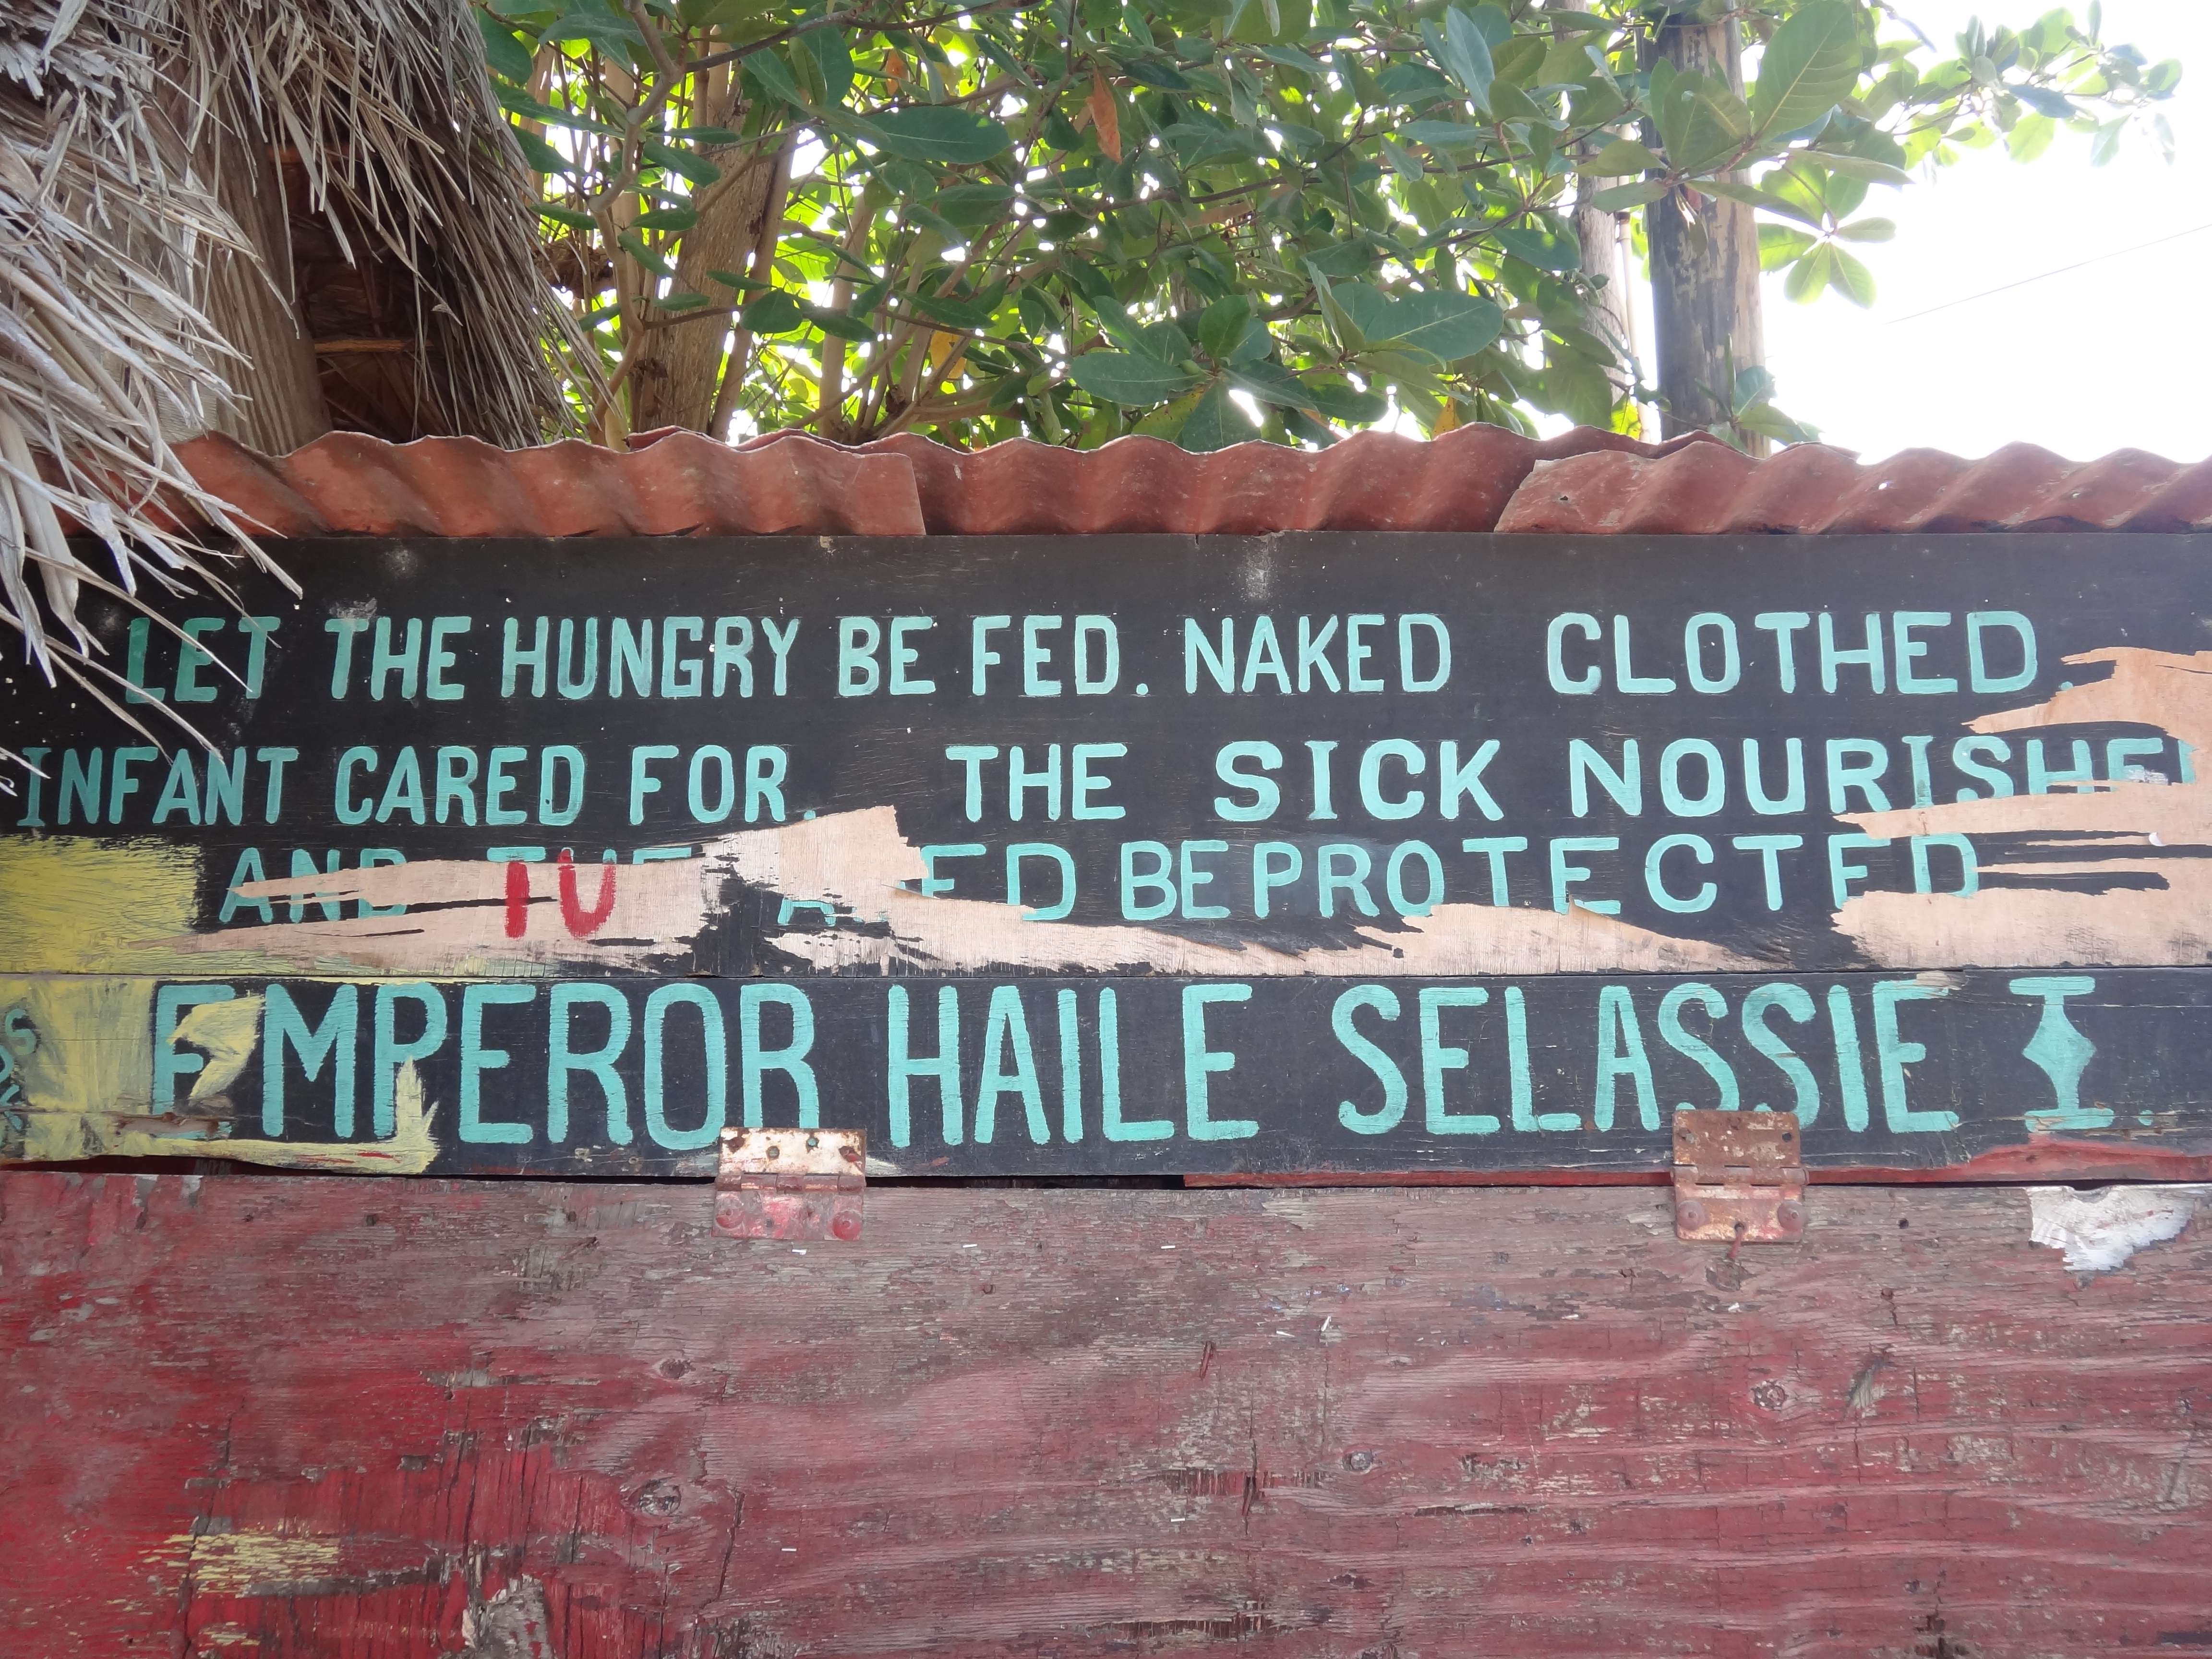 LET THE HUNGRY BE FED. NAKED CLOTHED.
INFANT CARED FOR. THE SICK NOURISHED
AND THE BE PROTECTED
EMPEROR HAILE SELASSIE I.